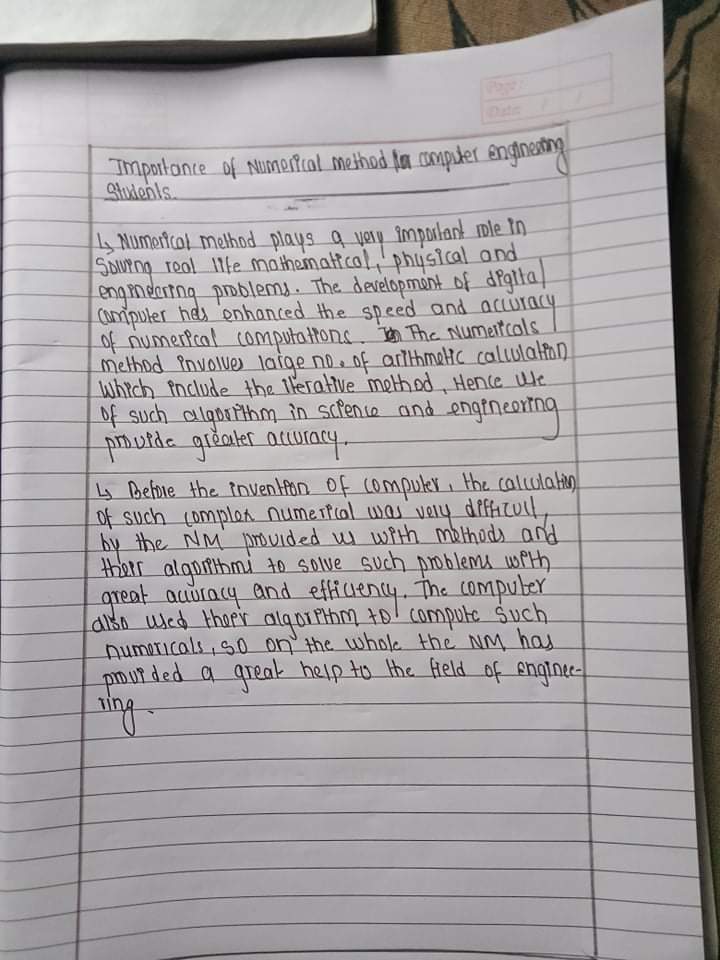 Page:
Date: / /
Importance of Numerical method for computer engineering
Students.
↳ Numerical method plays a very important role in
Solving real life mathematical, physical and
engineering problems. The development of digital
computer has enhanced the speed and accuracy
of numerical computations. The Numericals
method involves large no. of arithmetic calculation
which include the iterative method, Hence use
of such algorithm in science and engineering
provide greater accuracy.
↳ Before the invention of computer, the calculation
of such complex numerical was very difficult,
by the NM provided us with methods and
their algorithms to solve such problems with
great accuracy and efficiency. The computer
also used their algorithm to compute such
numericals, so on the whole the NM has
provided a great help to the field of enginee-
ring.